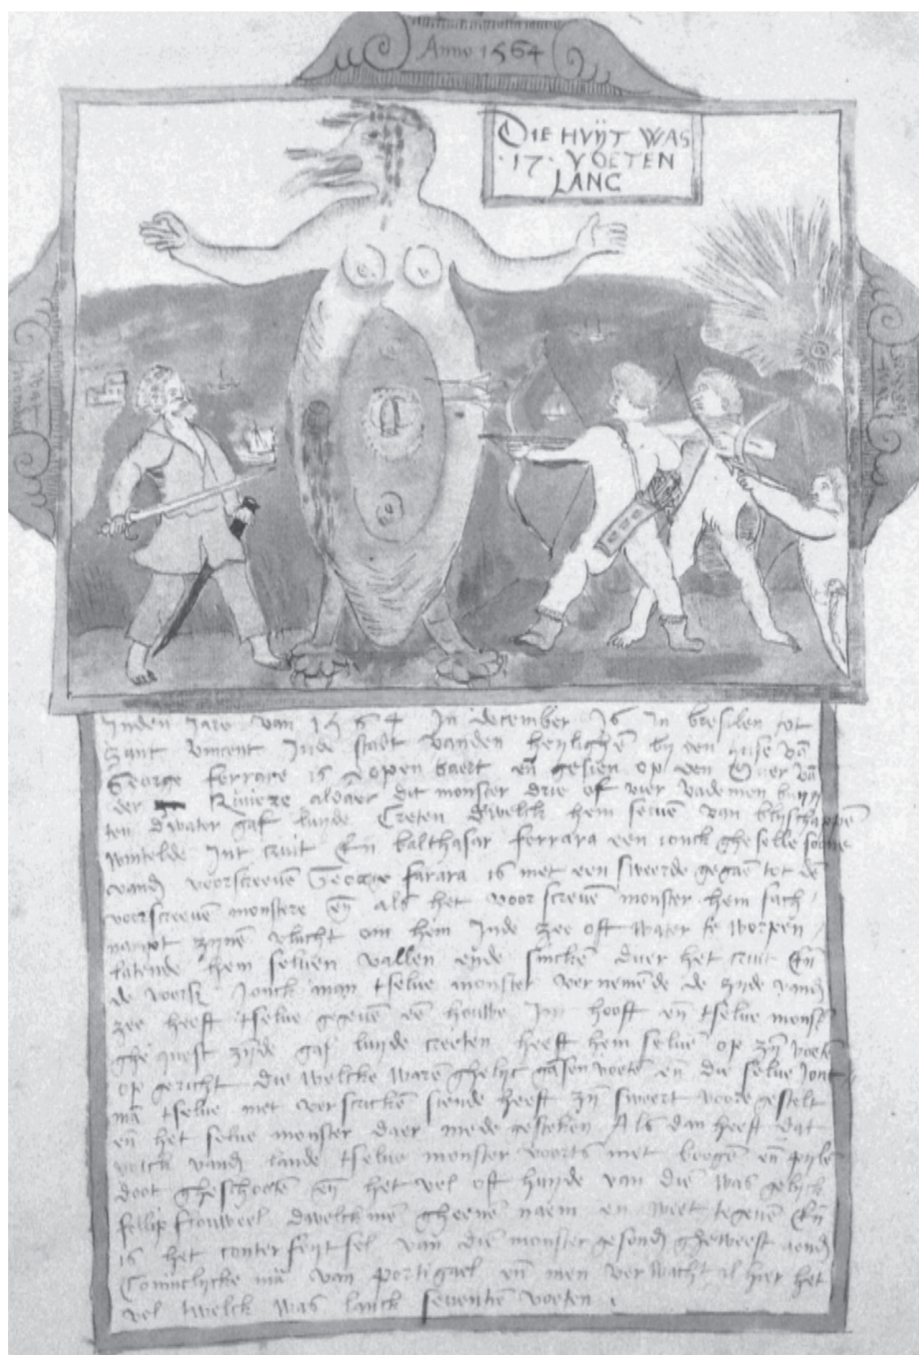 Anno 1564
DIE HVIJT WAS
·17· VOETEN
LANC
Inden Jare van 1564 In december is In bresilen tot
Sant vincent Inde stadt vanden heijlighē bij een huse vā
George ferrare is gopenbaert eñ gesien op den Oever vā
der Riviere aldaer dit monster drie of vier vademen buijt
ten dwater gaf luijde Creten dwelck hem selvē van blijschappē
wintelde Int cruit Eñ balthasar ferrara een ionck gheselle sone
vandē voorscrevē George farara is met een sweerde gegaē tot dē
voorscrevē monstere eñ als het voorscrevē monster hem sach
nampt zijnē vlucht om hem Inde zee oft water te worpen
latende hem selven vallen eñde sinckē duer het cruit Eñ
de voorsz Jonck man tselve monster vernemēde de zijde vandē
zee heeft tselve gegevē eē houwe In hooft eñ tselve monstr
ghequest zijnde gaf luijde creeten heeft hem selvē op zijn voetē
op gericht die welcke warē ghelijc gāsen voetē eñ die selve Jonc
mā tselve met verscrickē siende heeft zijn sweert voore gestelt
eñ het selve monster daer mede gestekē Als dan heeft dat
volck vandē lande tselve monster voorts met boogē eñ pijlē
doot gheschootē eñ het vel oft huijde van diē was gelijck
fellip frouweel dwelck mē gheenē naem en weet tegevē Eñ
is het conterfeijtsel van die monster gesondē gheweest aendē
Conincklijcke mā van portigael eñ men verwacht alhier het
vel twelck was lanck seventiē voeten